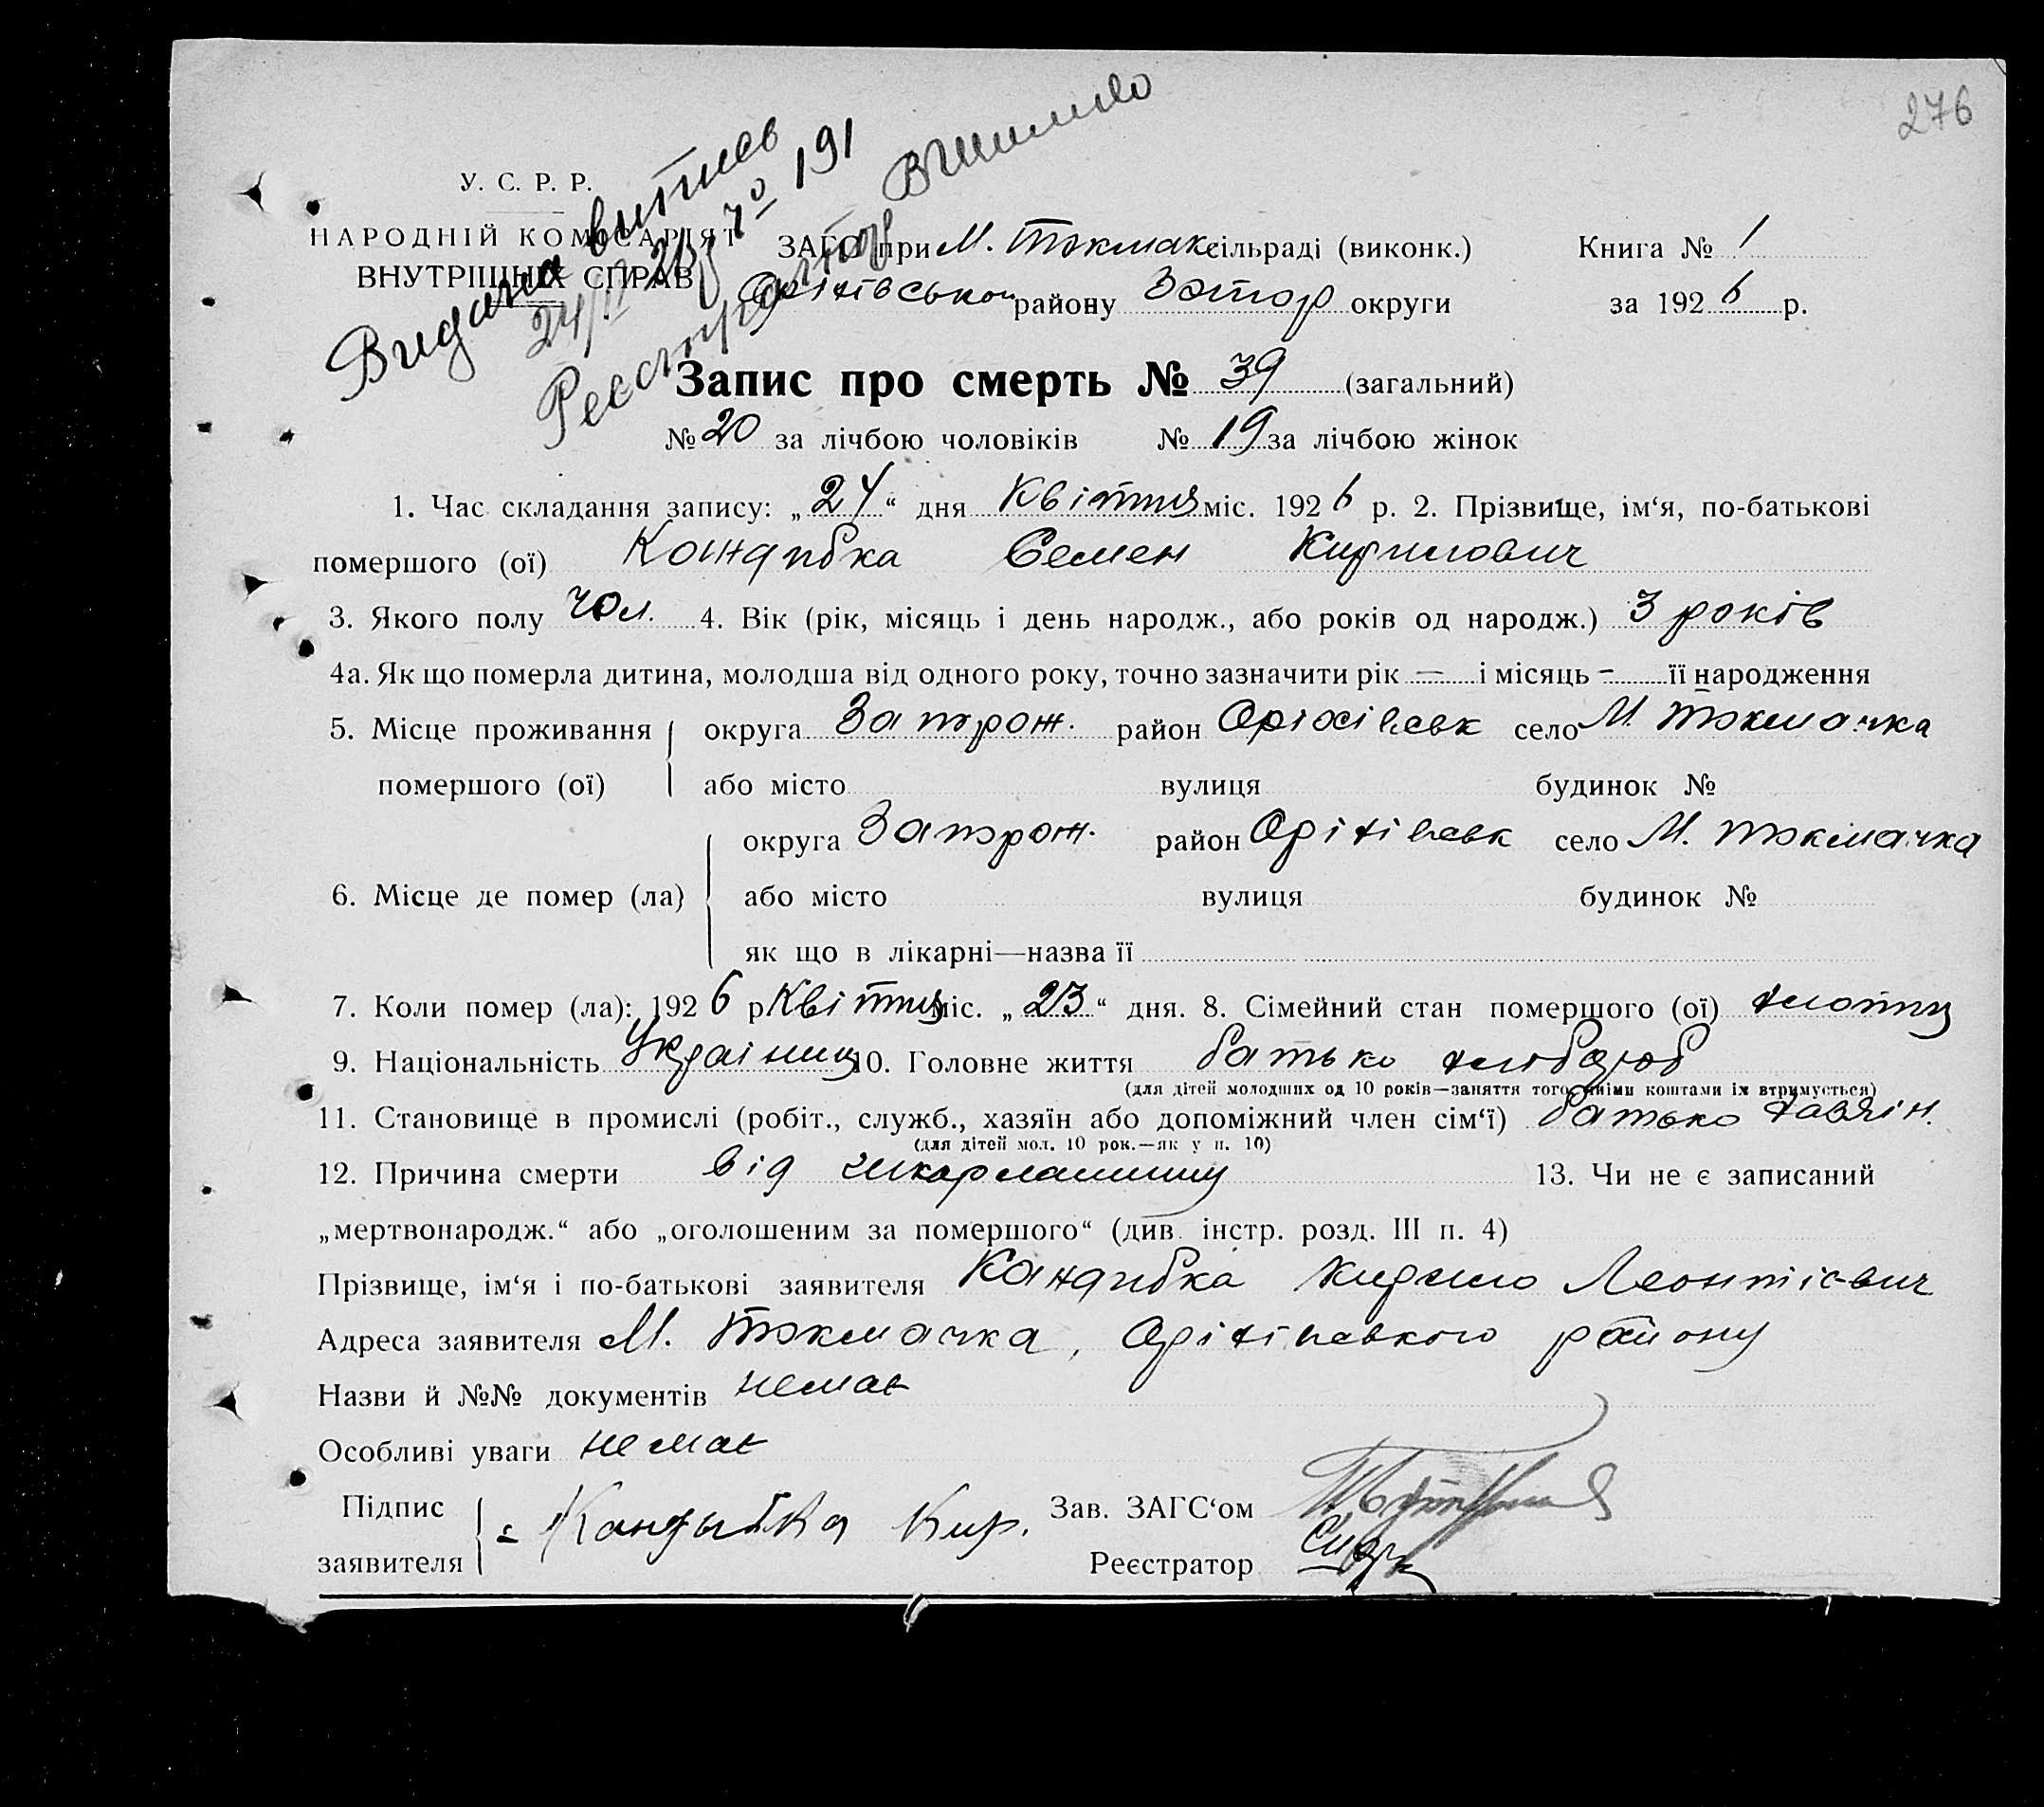 276
Видана витпсь
24/IV 26 р № 191
Реєстратор
У. С. Р. Р.
НАРОДНІЙ КОМІСАРІЯТ
ВНУТРІШНІХ СПРАВ
ЗАГС при М. Токмак сільраді (виконк.) Книга № 1
Оріхівськом району Запор округи за 1926 р.
Запис про смерть № 39 (загальний)
№ 20 за лічбою чоловіків № 19 за лічбою жінок
1. Час складання запису: „24“ дня Квітня міс. 1926 р. 2. Прізвище, ім‘я, по-батькові
помершого (ої) Кандибка Семен Кирилович
3. Якого полу чол. 4. Вік (рік, місяць і день народж., або років од народж.) 3 років
4а. Як що померла дитина, молодша від одного року, точно зазначити рік — і місяць - її народження
5. Місце проживання округа Запорож. район Оріхівськ село М. Токмачка
помершого (ої) або місто вулиця будинок №
округа Запорож. район Оріхівськ село М. Токмачка
6. Місце де помер (ла) або місто вулиця будинок №
як що в лікарні—назва її
7. Коли помер (ла): 1926 р Квітня міс. „23“ дня. 8. Сімейний стан помершого (ої) хлопец
9. Національність Україниц 10. Головне життя батько хлібороб
(для дітей молодших од 10 років—заняття того, чиїми коштами їх втримується)
11. Становище в промислі (робіт., служб., хазяїн або допоміжний член сім‘ї) батько хазяїн.
(для дітей мол. 10 рок.—як у п. 10)
12. Причина смерти від шкарлатини 13. Чи не є записаний
„мертвонародж.“ або „оголошеним за помершого“ (див. інстр. розд. III п. 4)
Прізвище, ім‘я і по-батькові заявителя Кандибка Кирило Леонтієвич
Адреса заявителя М. Токмачка, Оріхівського району
Назви й №№ документів немає
Особливі уваги немає
Підпис Зав. ЗАГС‘ом
заявителя Кандыбка Кир. Реєстратор